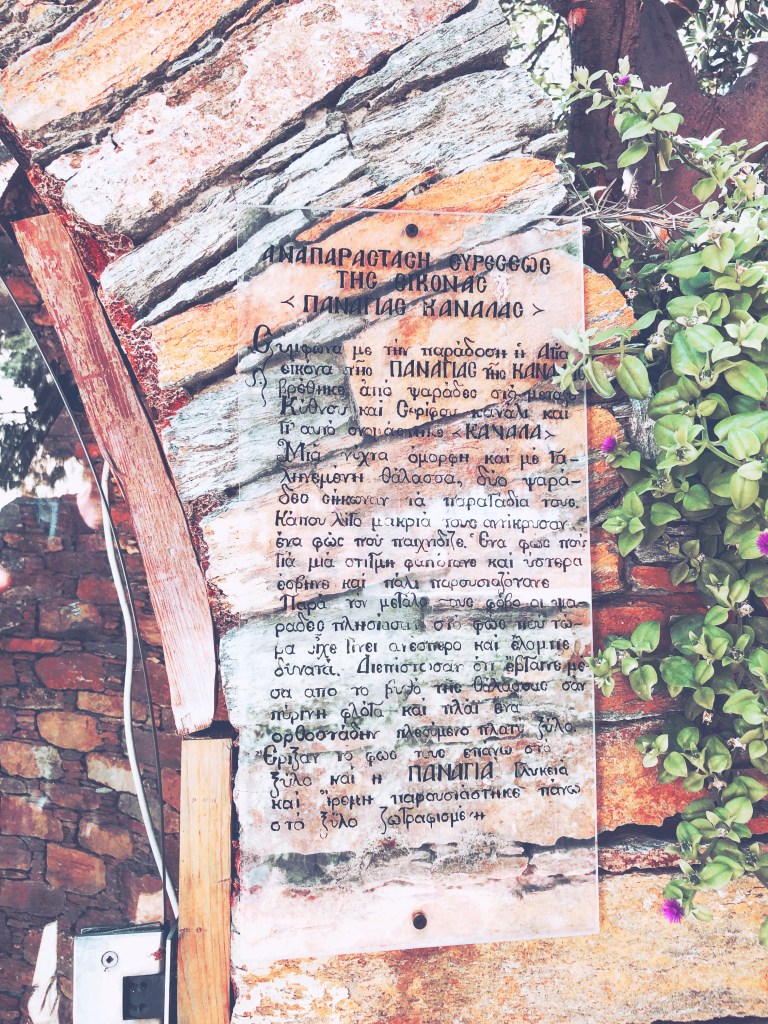 ΑΝΑΠΑΡΑΣΤΑΣΗ ΕΥΡΕΣΕΩΣ
ΤΗΣ ΕΙΚΟΝΑΣ
< ΠΑΝΑΓΙΑΣ ΚΑΝΑΛΑΣ >
Σύμφωνα με την παράδοση ἡ Αγία
εικονα τῆς ΠΑΝΑΓΙΑΣ τῆς ΚΑΝΑ
βρέθηκε από ψαράδες στό μεταξύ
Κύθνου καί Σερίφου κανάλι και
Γι' αυτό ονομάστηκε <ΚΑΝΑΛΑ>
Μιά νύχτα όμορφη καί μέ γα-
ληνεμένη θάλασσα, δύο ψαρά-
δες σήκωναν τά παραγάδια τους.
Κάπου λίγο μακριά τους αντίκρυσαν
ένα φώς πού παιχνίδιζε. Ένα φως πού
γιά μιά στιγμή φώτιζε καί ύστερα
έσβηνε καί πάλι παρουσιάζοταν
Παρά τον μεγάλο τους φόβο οι ψα-
ράδες πλησίασαν στό φώς πού τώ-
ρα εἶχε γίνει ανεστερο καί έλαμπε
δυνατά. Διεπίστωσαν ότι έβγαινε με
σα απο το βυθό της θάλασσας σαν
πύρινη φλόγα καί πλάϊ ένα
ορθοστάδην πλεούμενο πλατύ ξύλο.
Ἔριξαν το φως τους επάνω στο
ξύλο καί η ΠΑΝΑΓΙΑ Γλυκειά
καί ἤρεμη παρουσιάστηκε πάνω
στό ξύλο ζωγραφισμένη